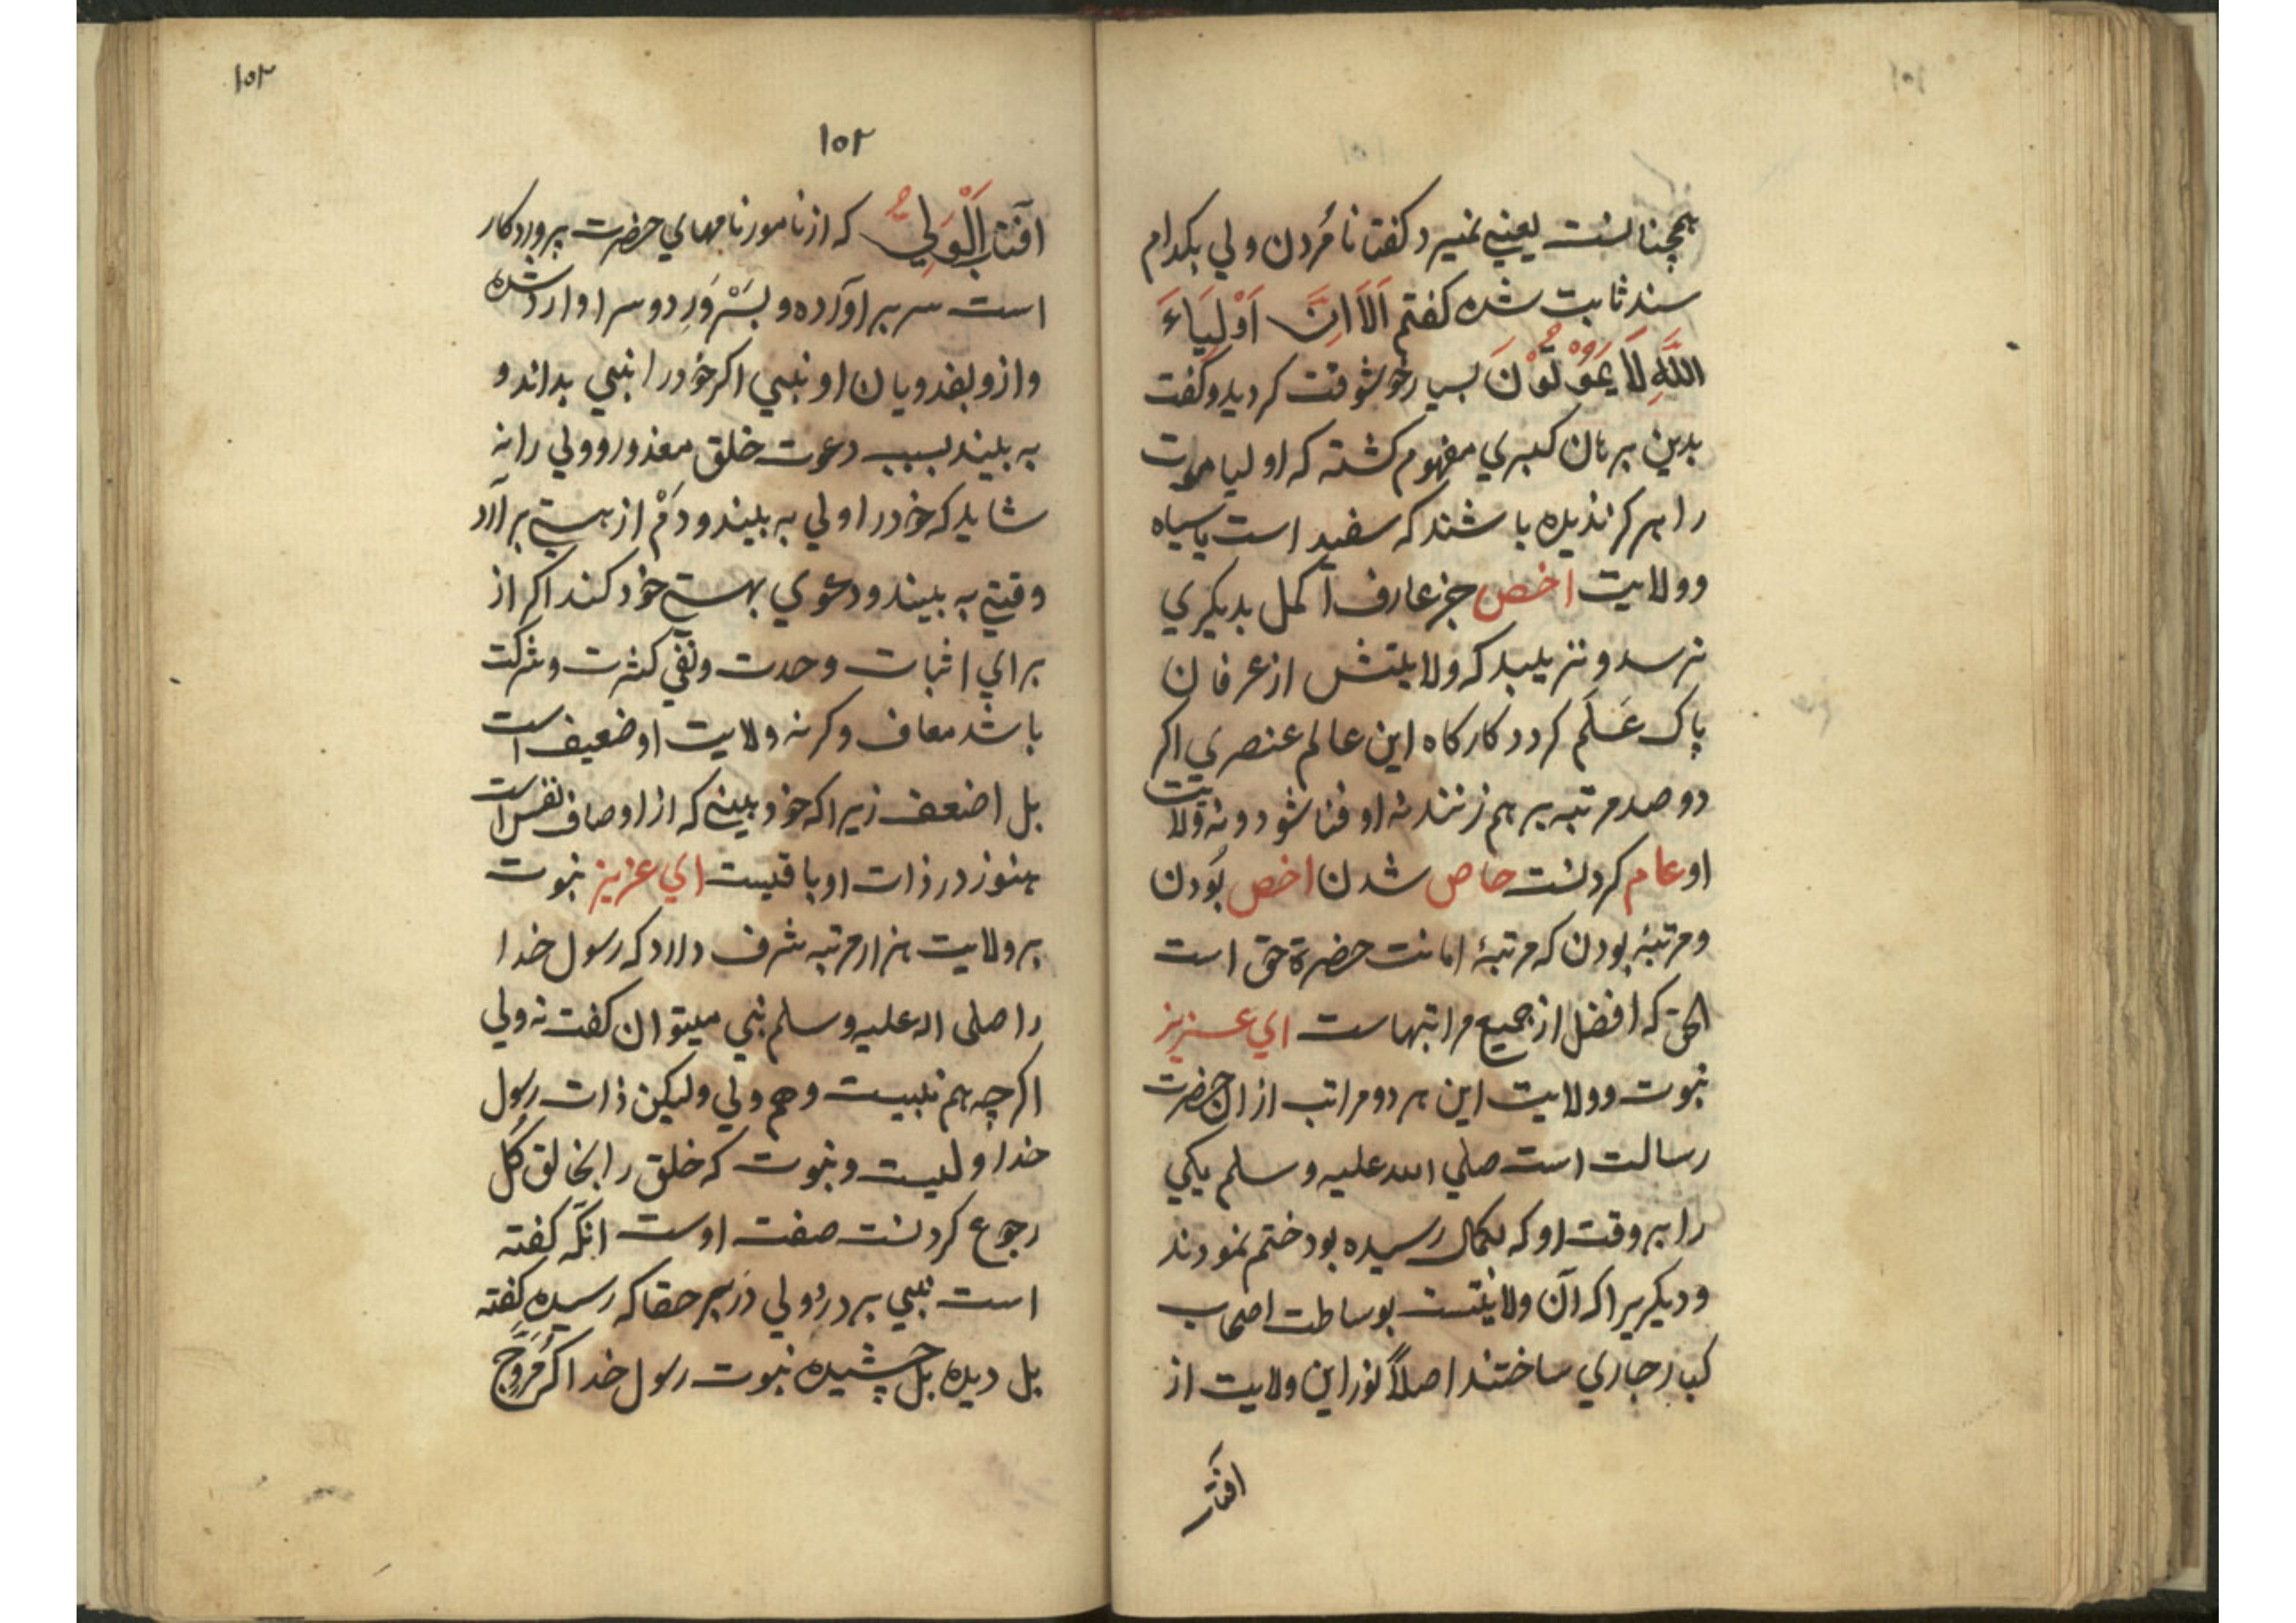 همچنانست یعنی نمیرد کفتا نامُردن ولی بکدام
سند ثابت شده کفتم اَلَا اِنَّ اَوْلِیَاءَ
اللّٰهِ لَا یَمُوْتُوْنَ بسیار خوشوقت کردید و کفت
بدین برهان کبری مفهوم کشته که اولیا موت
را هرکز ندیده باشند که سفید است یا سیاه
و ولایت اخص جز عارف اکمل بدیکری
نرسد و نزیبد که ولایتش از عرفان
پاک عَلَم کردد کارکاه این عالم عنصری اکر
دو صد مرتبه برهم زنند نه او فنا شود و نه ولایت
او عام کردنست خاص شدن اخص بُودن
و مرتبۀ بودن که مرتبۀ امانت حضرة حق است
الحق که افضل از جمیع مراتبهاست ای عزیز
نبوت و ولایت این هر دو مراتب از ان حضرت
رسالت است صلی الله علیه و سلم یکی
را بر وقت او که بکمال رسیده بود ختم نمودند
و دیکریرا که آن ولایتست بوساطت اصحاب
کبار جاری ساختند اصلاً نور این ولایت از
افتاب
١٥٢
١٥٢
افتاب اَلْوَلِیُّ که از نامور نامهای حضرت پروردکار
است سر براورده و بسَرْوَرِ دو سرا وارد شده
و ازو بفدویان او نبی اکر خود را نبی بداند و
به بیند بسبب دعوت خلق معذور و ولی را نه
شاید که خود را ولی به بیند و دَمْ از هستی برآرد
وقتی به بیند و دعوی بهستی خود کند اکر از
برای اثبات وحدت و نفی کثرت و شرکت
باشد معاف و کرنه ولایت او ضعیف است
بل اضعف زیرا که خود بینی که از اوصاف نفس است
هنوز در ذات او باقیست ای عزیز نبوت
بر ولایت هزار مرتبه شرف دارد که رسول خدا
را صلی الله علیه و سلم نبی میتوان کفت نه ولی
اکرچه هم نبیست و هم ولی ولیکن ذات رسول
خدا ولیست و نبوت که خلق را بخالق کُل
رجوع کردنست صفت اوست انکه کفته
است نبی بر در و ولی در بر حقا که رسیده کفته
بل دیده بل چشیده نبوت رسول خدا اکر مُرَوَّج